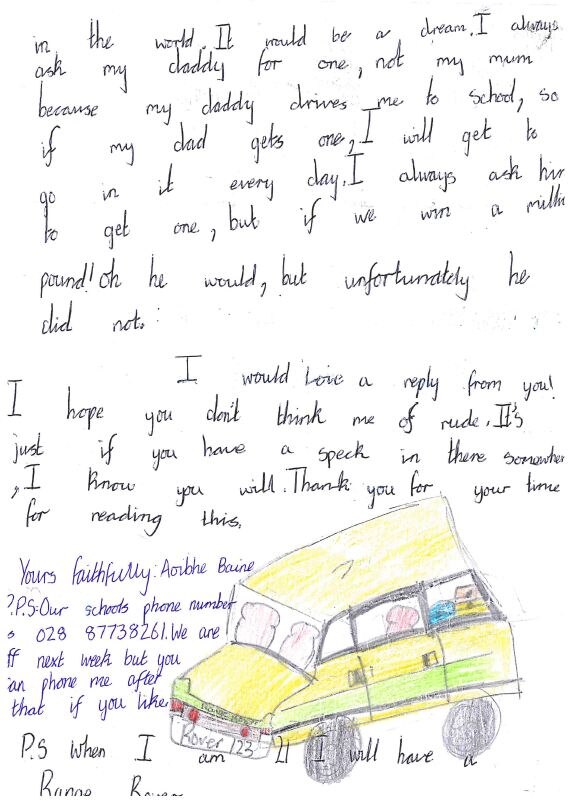 in the world. It would be a dream. I always
ask my daddy for one, not my mum
because my daddy drives me to school, so
if my dad gets one, I will get to
go in it every day. I always ask him
to get one, but if we win a milli
pound! oh he would, but unfortunately he
did not.
I would Love a reply from you!
I hope you don't think me of rude. It's
just if you have a speck in there somewher
, I know you will. Thank you for your time
for reading this.
Yours faithfully: Aoibhe Baine
?P.S: Our schools phone number
s 028 87738261. We are
ff next week but you
an phone me after
that if you like
RANGE ROVER
Rover 123
P.S When I am 21 I will have a
Range Rover